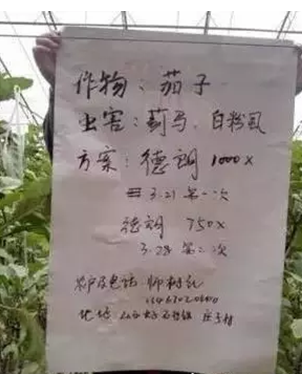 作物：茄子
虫害：蓟马、白粉虱
方案：德朗 1000x
3.21 第一次
德朗 750x
3.28 第二次
农户及电话
地址：